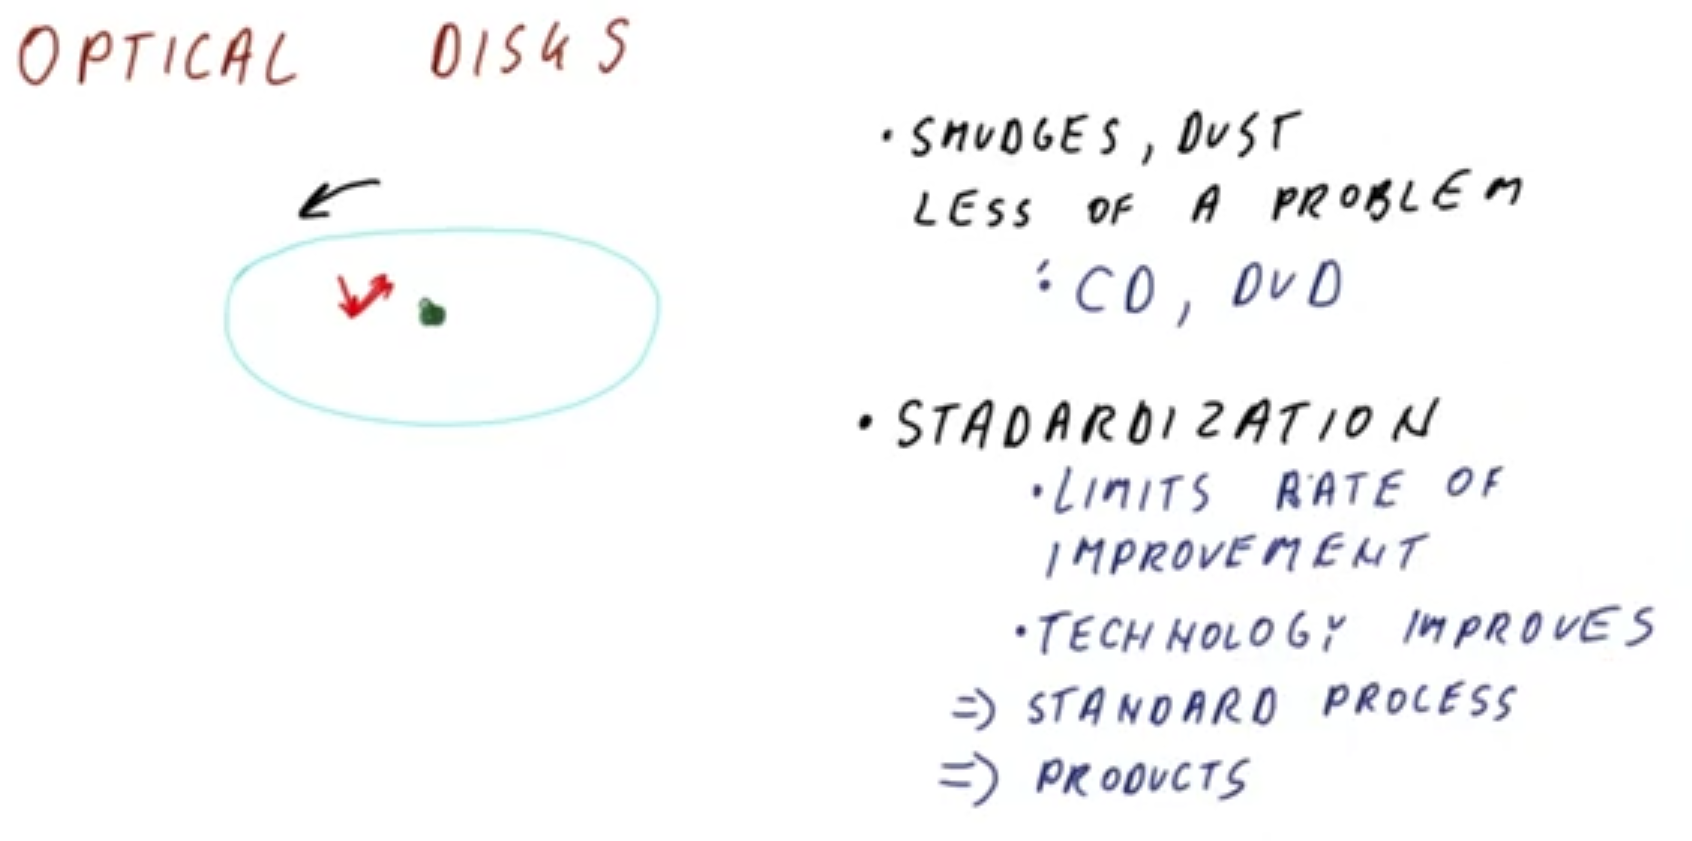 OPTICAL DISKS
• SMUDGES, DUST
LESS OF A PROBLEM
: CD, DVD
• STADARDIZATION
• LIMITS RATE OF
IMPROVEMENT
• TECHNOLOGY IMPROVES
=> STANDARD PROCESS
=> PRODUCTS